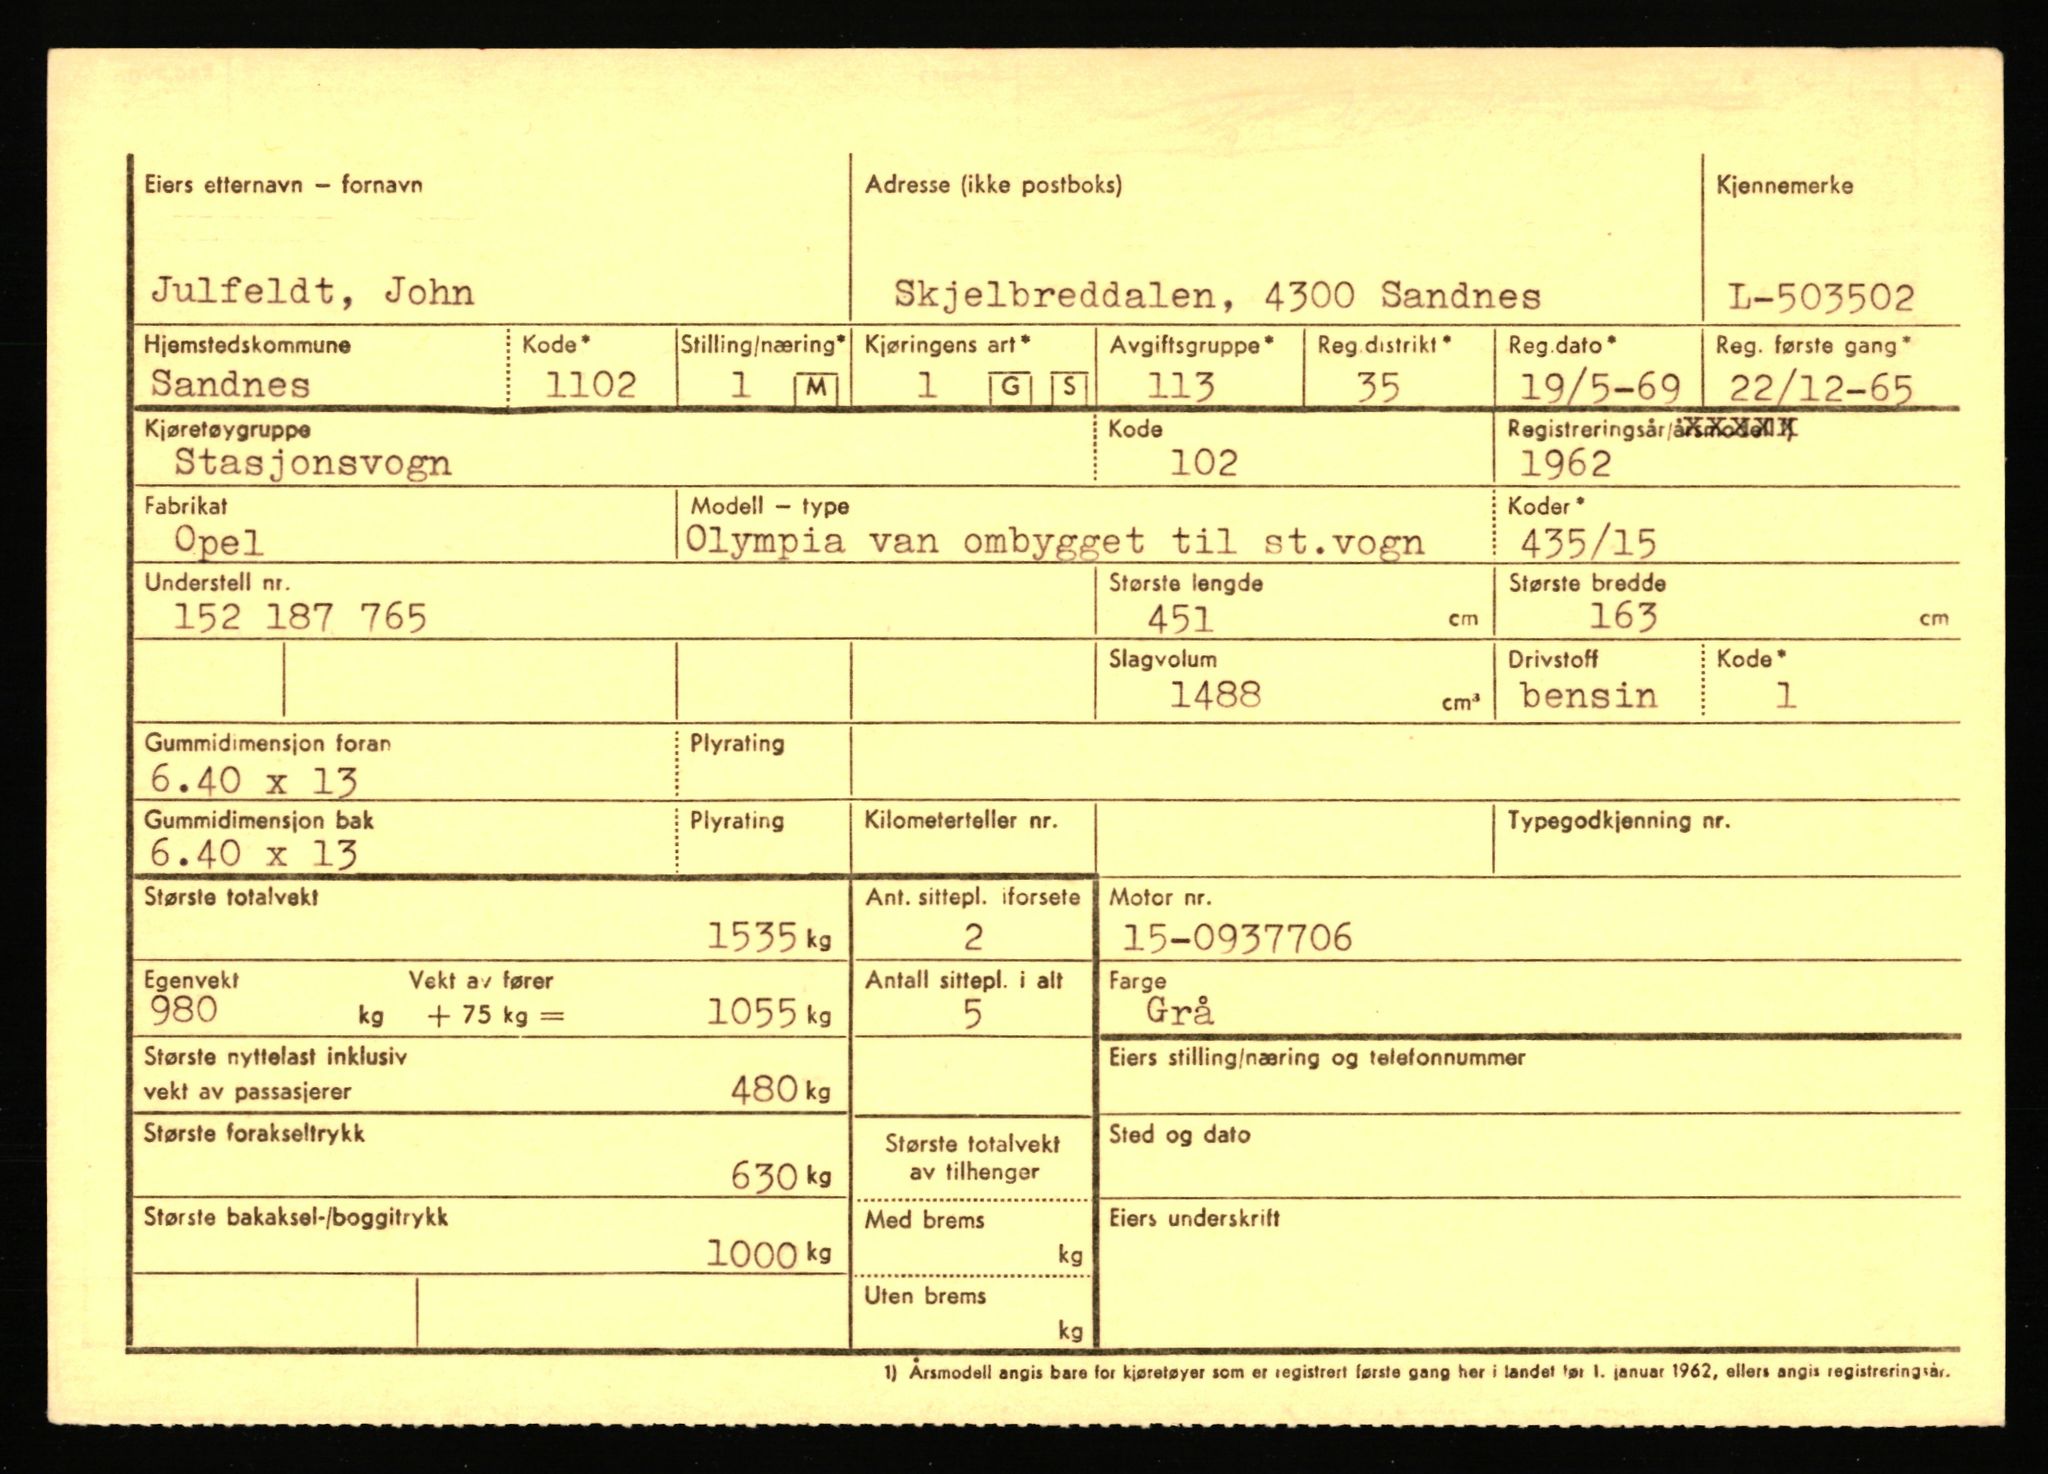 Eiers etternavn – fornavn
Adresse (ikke postboks)
Kjennemerke
Julfeldt, John
Skjelbreddalen, 4300 Sandnes
L-503502
Hjemstedskommune
Kode*
Stilling/næring*
Kjøringens art*
Avgiftsgruppe*
Reg.distrikt*
Reg.dato*
Reg. første gang*
Sandnes
1102
1 M
1 G S
113
35
19/5-69
22/12-65
Kjøretøygruppe
Kode
Registreringsår/årsmodell 1)
Stasjonsvogn
102
1962
Fabrikat
Modell – type
Koder*
Opel
Olympia van ombygget til st.vogn
435/15
Understell nr.
Største lengde
Største bredde
152 187 765
451 cm
163 cm
Slagvolum
Drivstoff
Kode*
1488 cm³
bensin
1
Gummidimensjon foran
Plyrating
6.40 x 13
Gummidimensjon bak
Plyrating
Kilometerteller nr.
Typegodkjenning nr.
6.40 x 13
Største totalvekt
Ant. sittepl. i forsete
Motor nr.
1535 kg
2
15-0937706
Egenvekt
Vekt av fører
Antall sittepl. i alt
Farge
980 kg + 75 kg = 1055 kg
5
Grå
Største nyttelast inklusiv
vekt av passasjerer
480 kg
Eiers stilling/næring og telefonnummer
Største forakseltrykk
630 kg
Største totalvekt
av tilhenger
Sted og dato
Største bakaksel-/boggitrykk
1000 kg
Med brems
kg
Eiers underskrift
Uten brems
kg
1) Årsmodell angis bare for kjøretøyer som er registrert første gang her i landet før 1. januar 1962, ellers angis registreringsår.